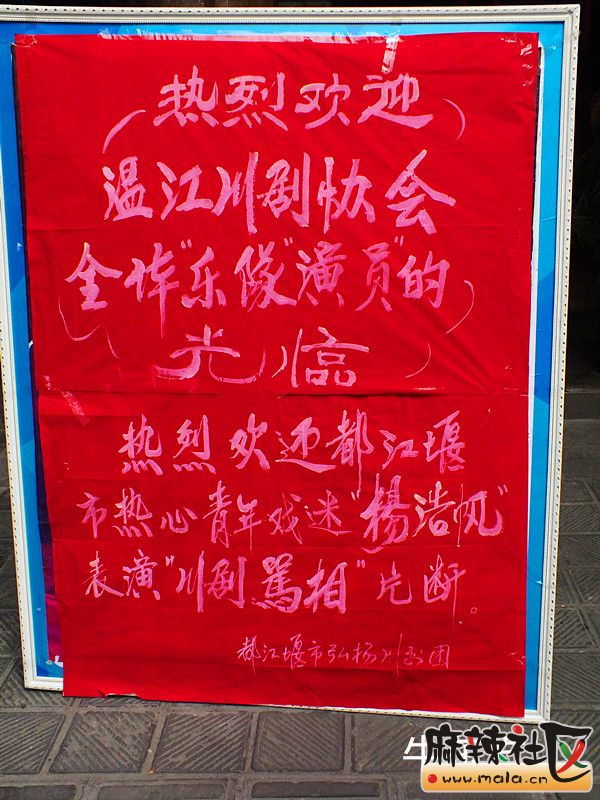 热烈欢迎
温江川剧协会
全体"乐队"演员"的
光临
热烈欢迎都江堰
市热心青年戏迷"楊浩帆"
表演"川剧駡相"片断。
都江堰市弘扬川剧团
麻辣社区
www.mala.cn